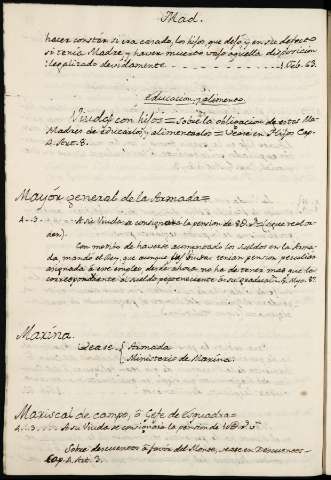 Mad.
hacer constar si era casado, los hijos que dejó, y en su defecto
si tenia Madre, y haver muerto bajo aquella disposicion
legalizado devidamente - - - 1. Feb. 63.
Educacion y alimentos.
Viudas con hijos = Sobre la obligacion de estas Ma-
Madres de educarlos y alimentarlos = Vease en Hijos Cap.
4. Art. 8.
Mayor general de la Armada =
A su Viuda se consignara la pension de
den).
Con motivo de haverse aumentado los sueldos en la Arma-
da mandó el Rey, que aunque sus viudas tenian pension peculiar
asignada à este empleo, desde ahora no ha de tener mas que la
correspondiente à sueldo perteneciente à su graduacion
Marina.
Vease Armada
Ministerio de Marina.
Mariscal de campo, ò Gefe de Esquadra =
A su Viuda se consignara la pension de
Sobre descuentos à favor del Monte, vease en Descuentos
Cap. 4. Art. 3.